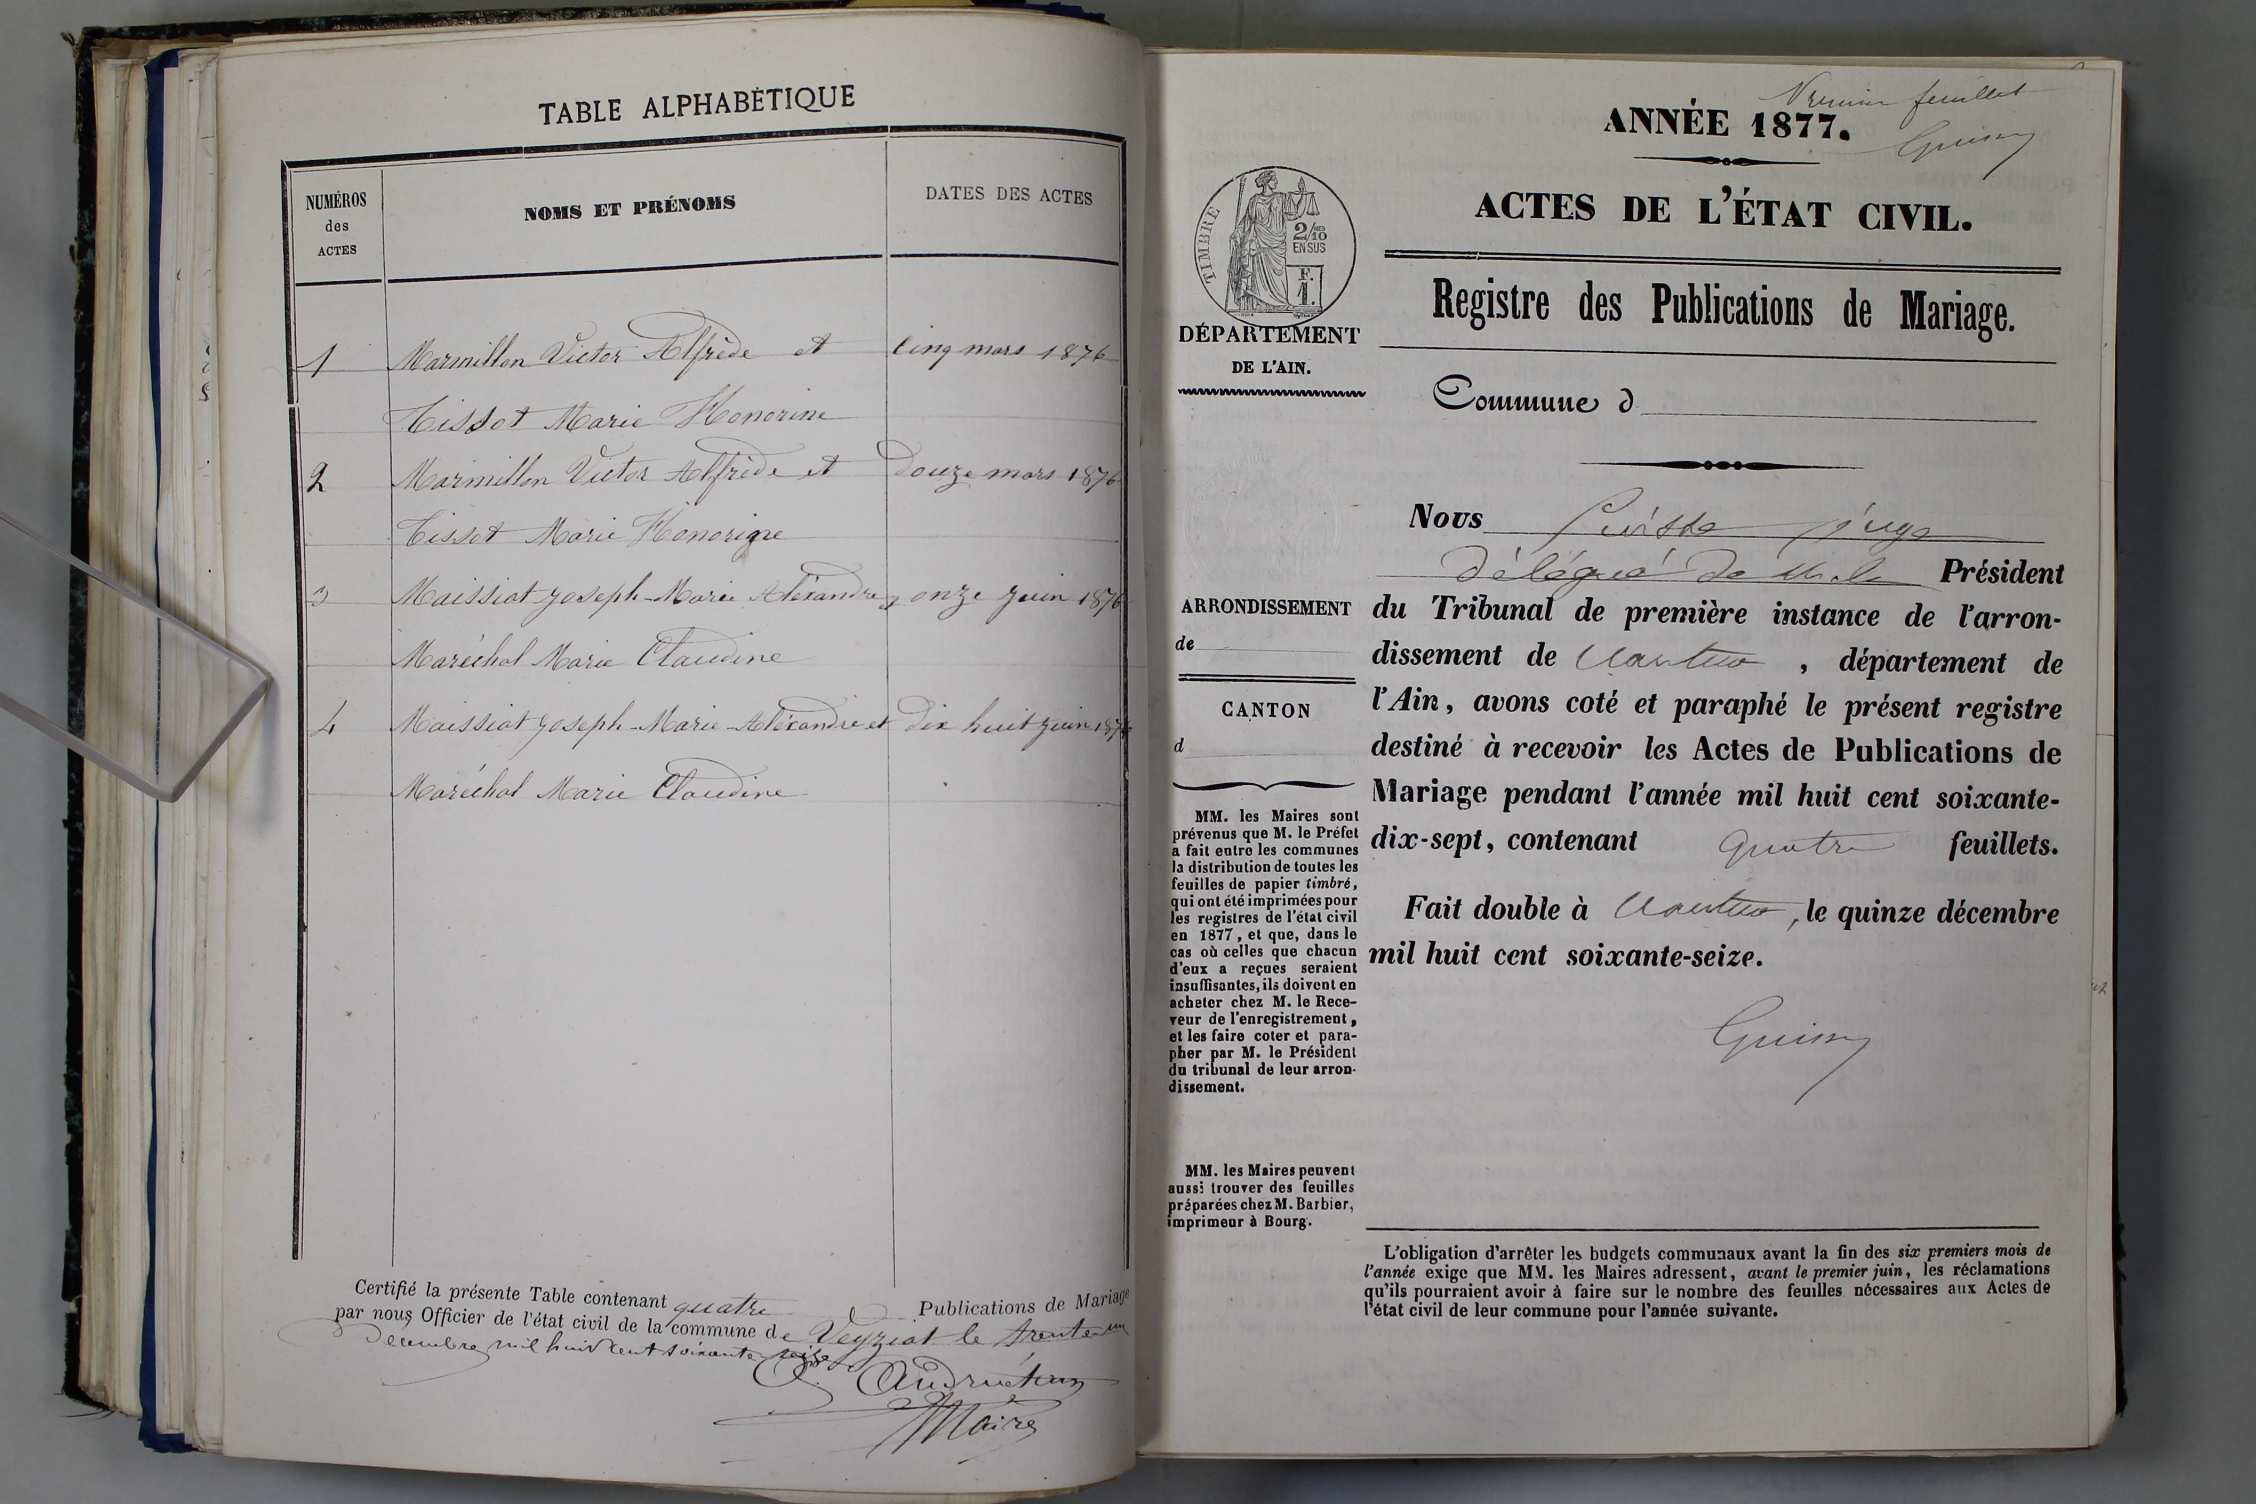 TABLE ALPHABÉTIQUE
NUMÉROS
des
ACTES
NOMS ET PRÉNOMS
DATES DES ACTES
1 Marmillon Victor Alfrède et cinq mars 1876
Tissot Marie Honorine
2 Marmillon Victor Alfrède et Douze mars 1876
Tissot Marie Honorine
3 Maissiat Joseph-Marie Aléxandre, onze Juin 1876
Maréchal Marie Claudine
4 Maissiat Joseph-Marie-Aléxandre et Dix huit Juin 1876
Maréchal Marie Claudine
Certifié la présente Table contenant quatre Publications de Mariage
par nous Officier de l'état civil de la commune de Veyziat le trente un
Décembre mil huit cent soixante seize
Maire
Premier feuillet
ANNÉE 1877.
ACTES DE L'ÉTAT CIVIL.
TIMBRE
2/10
EN SUS
F.
1.
DÉPARTEMENT
DE L'AIN.
Registre des Publications de Mariage.
Commune d
Nous juge
délégué de Président
du Tribunal de première instance de l'arron-
dissement de Nantua, département de
l'Ain, avons coté et paraphé le présent registre
destiné à recevoir les Actes de Publications de
Mariage pendant l'année mil huit cent soixante-
dix-sept, contenant quatre feuillets.
Fait double à Nantua, le quinze décembre
mil huit cent soixante-seize.
ARRONDISSEMENT
de
CANTON
d
MM. les Maires sont
prévenus que M. le Préfet
a fait entre les communes
la distribution de toutes les
feuilles de papier timbré,
qui ont été imprimées pour
les registres de l'état civil
en 1877, et que, dans le
cas où celles que chacun
d'eux a reçues seraient
insuffisantes, ils doivent en
acheter chez M. le Rece-
veur de l'enregistrement,
et les faire coter et para-
pher par M. le Président
du tribunal de leur arron-
dissement.
MM. les Maires peuvent
aussi trouver des feuilles
préparées chez M. Barbier,
imprimeur à Bourg.
L'obligation d'arrêter les budgets communaux avant la fin des six premiers mois de
l'année exige que MM. les Maires adressent, avant le premier juin, les réclamations
qu'ils pourraient avoir à faire sur le nombre des feuilles nécessaires aux Actes de
l'état civil de leur commune pour l'année suivante.